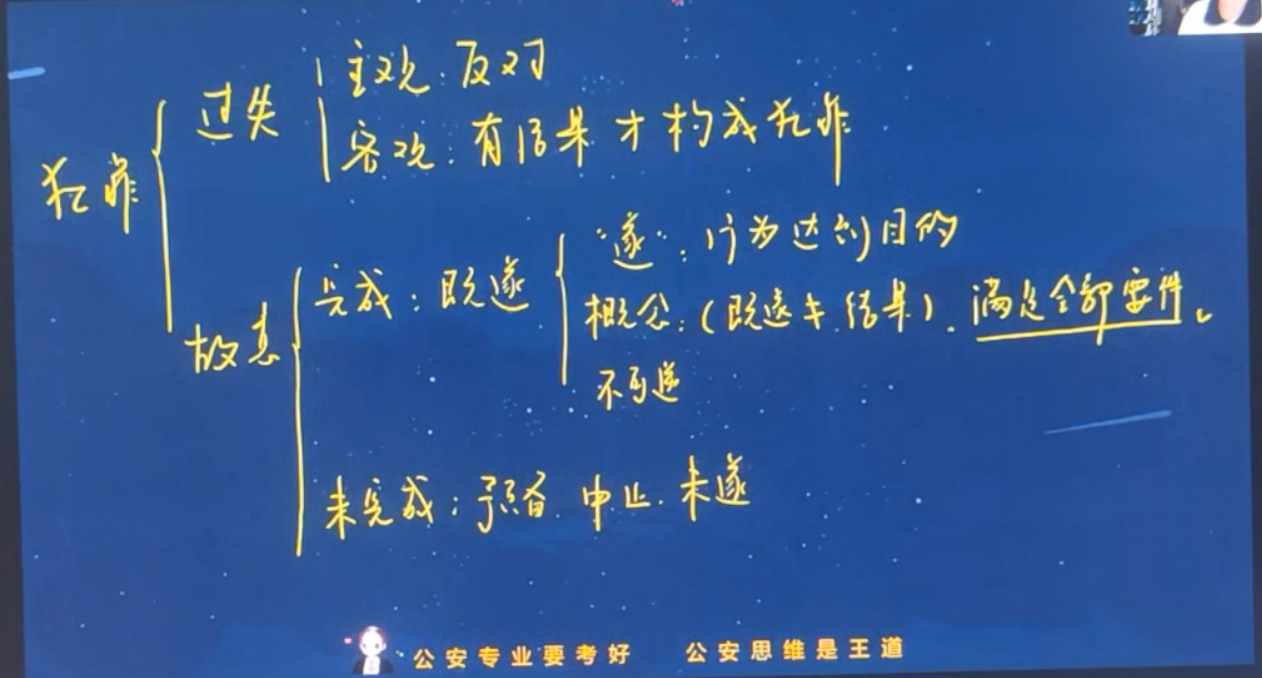 犯罪
过失
主观:反对
客观:有结果才构成犯罪
故意
完成:既遂
"遂":行为达到目的
概念:(既遂≠结果).满足全部要件。
不可逆
未完成:预备.中止.未遂
公安专业要考好 公安思维是王道